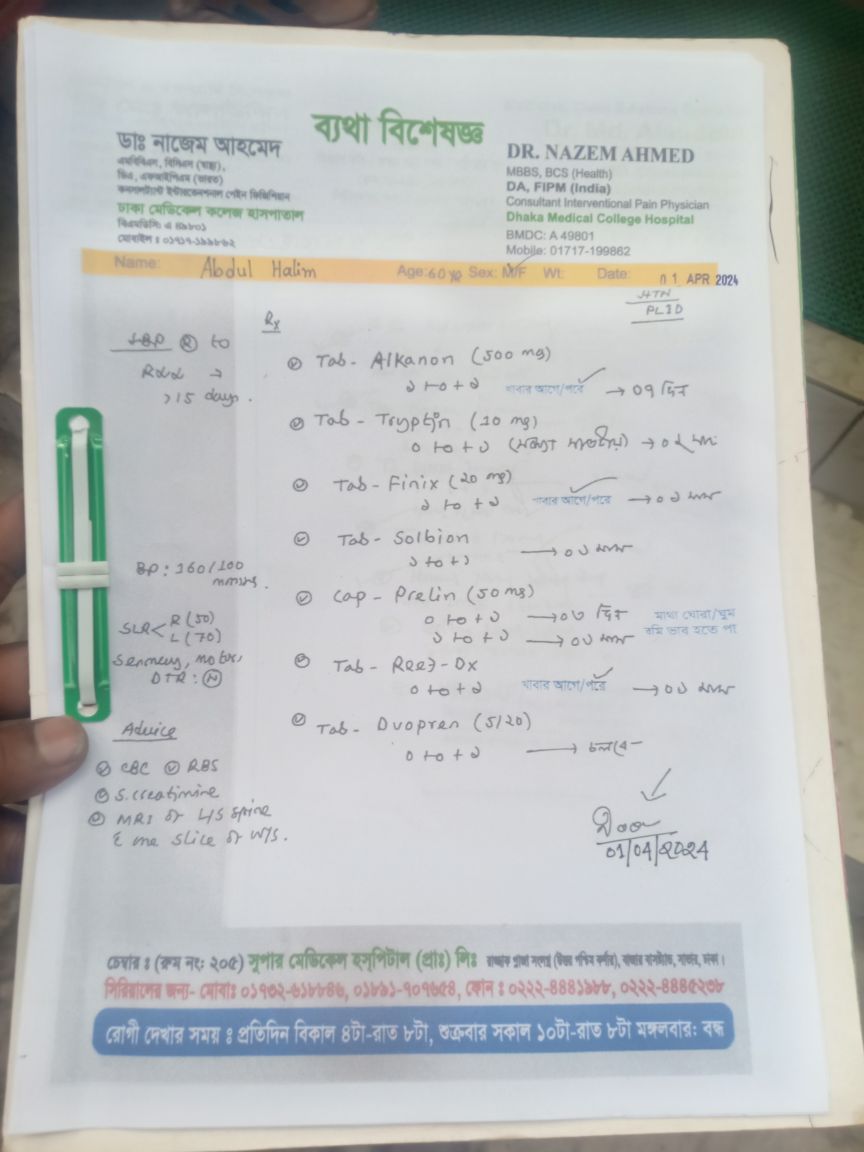 ব্যথা বিশেষজ্ঞ
ডাঃ নাজেম আহমেদ
এমবিবিএস, বিসিএস (স্বাস্থ্য),
ডিএ, এফআইপিএম (ভারত)
কনসালট্যান্ট ইন্টারভেনশনাল পেইন ফিজিশিয়ান
ঢাকা মেডিকেল কলেজ হাসপাতাল
বিএমডিসি: এ ৪৯৮০১
মোবাইল : ০১৭১৭-১৯৯৮৬২
DR. NAZEM AHMED
MBBS, BCS (Health)
DA, FIPM (India)
Consultant Interventional Pain Physician
Dhaka Medical College Hospital
BMDC: A 49801
Mobile: 01717-199862
Name: Abdul Halim Age: 60 Sex: M/F Wt: Date: 01 APR 2024
HTN
PLID
LBP R to
>15 days.
BP: 160/100
SLR < R (50)
L (70)
Sensory, motor,
DTR: N
Advice
CBC RBS
S. creatinine
MRI of L/S spine
one slice of W/S.
Rx
Tab - Alkanon (500 mg)
১ + ০ + ১ খাবার আগে/পরে → ০৭ দিন
Tab - Tryptin (10 mg)
০ + ০ + ১ (সন্ধ্যা সাতটায়) → ০২ মাস
Tab - Finix (20 mg)
১ + ০ + ১ খাবার আগে/পরে → ০১ মাস
Tab - Solbion
১ + ০ + ১ → ০১ মাস
Cap - Prelin (50 mg)
০ + ০ + ১ → ০৩ দিন মাথা ঘোরা/ঘুম
১ + ০ + ১ → ০১ মাস বমি ভাব হতে পা
Tab - Reef-Dx
০ + ০ + ১ খাবার আগে/পরে → ০১ মাস
Tab - Duopren (5/20)
০ + ০ + ১ → চলবে
01/04/2024
চেম্বার : (রুম নং: ২০৫) সুপার মেডিকেল হসপিটাল (প্রাঃ) লিঃ
সিরিয়ালের জন্য- মোবাঃ ০১৭৩২-৬১৮৮৪৬, ০১৮৯১-৭০৭৬৫৪, ফোন : ০২২২-৪৪৪১৯৮৮, ০২২২-৪৪৪৫২৩৮
রোগী দেখার সময় : প্রতিদিন বিকাল ৪টা-রাত ৮টা, শুক্রবার সকাল ১০টা-রাত ৮টা মঙ্গলবার: বন্ধ